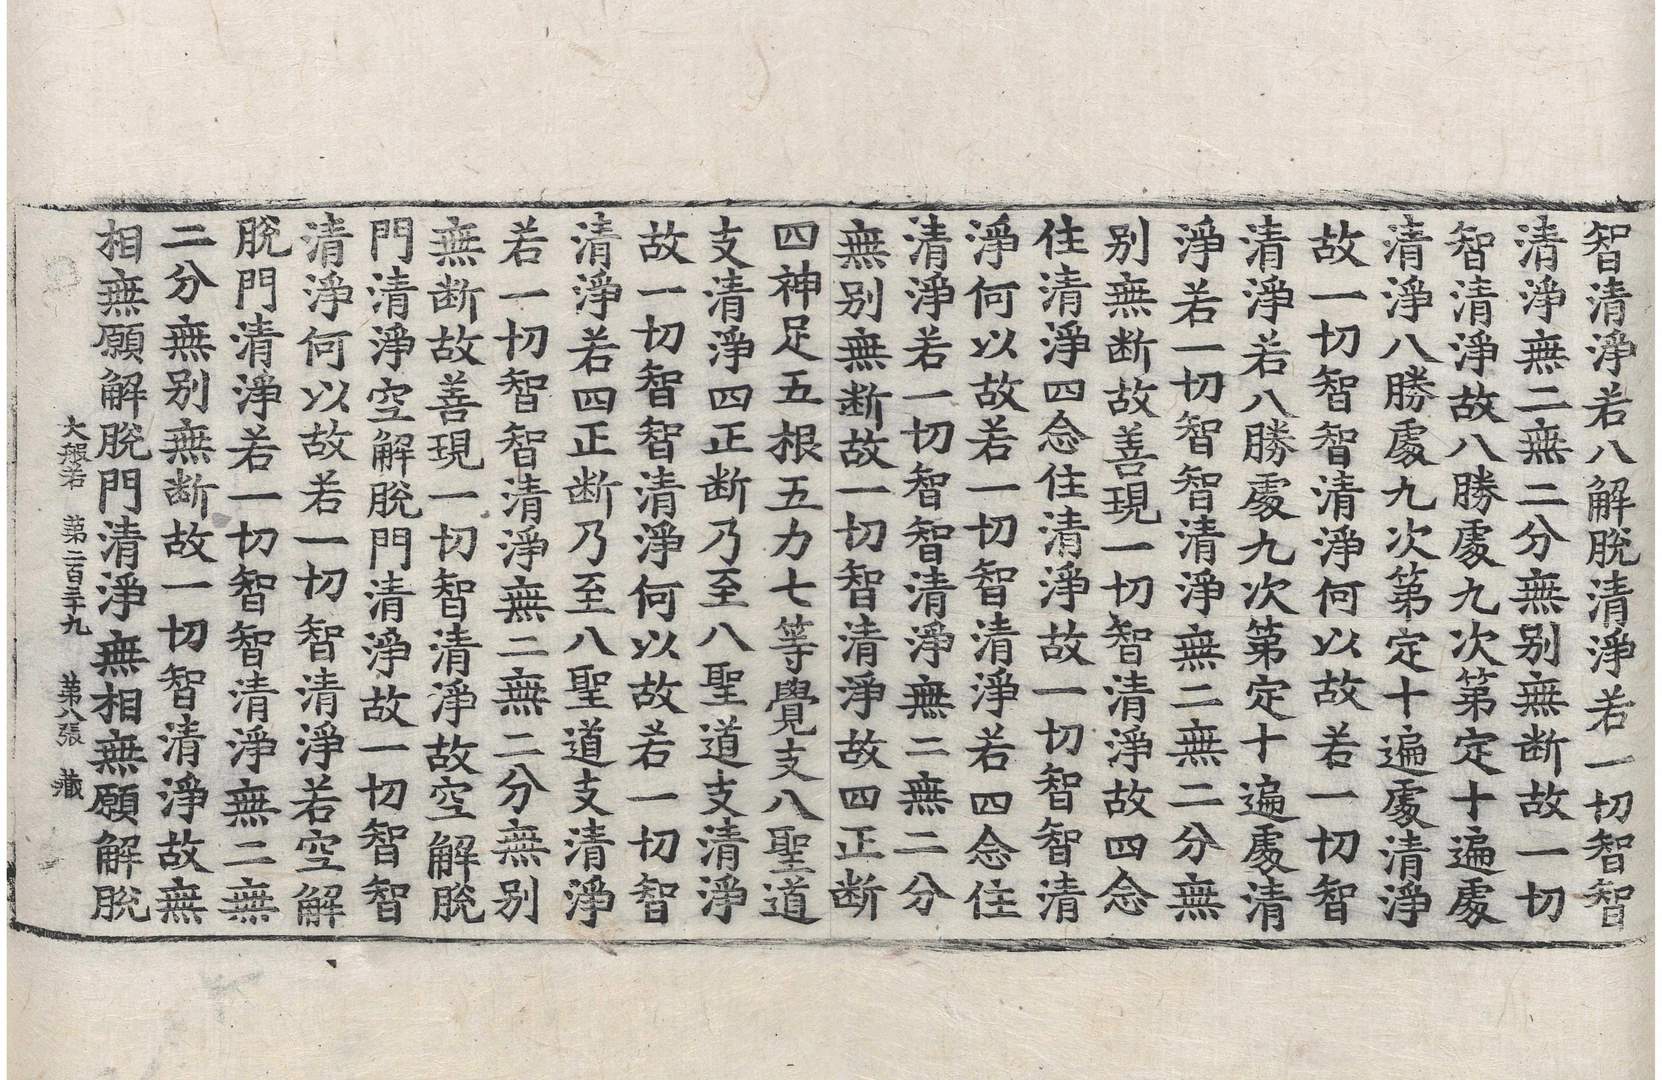 智清淨若八解脫清淨若一切智智
清淨無二無二分無別無斷故一切
智清淨故八勝處九次第定十遍處
清淨八勝處九次第定十遍處清淨
故一切智智清淨何以故若一切智
清淨若八勝處九次第定十遍處清
淨若一切智智清淨無二無二分無
別無断故善現一切智清淨故四念
住清淨四念住清淨故一切智智清
淨何以故若一切智清淨若四念住
清淨若一切智智清淨無二無二分
無別無断故一切智清淨故四正断
四神足五根五力七等覺支八聖道
支清淨四正断乃至八聖道支清淨
故一切智智清淨何以故若一切智
清淨若四正断乃至八聖道支清淨
若一切智智清淨無二無二分無別
無断故善現一切智清淨故空解脫
門清淨空解脫門清淨故一切智智
清淨何以故若一切智清淨若空解
脫門清淨若一切智智清淨無二無
二分無別無断故一切智清淨故無
相無願解脫門清淨無相無願解脫
大般若 第二百三十九 第八張 藏